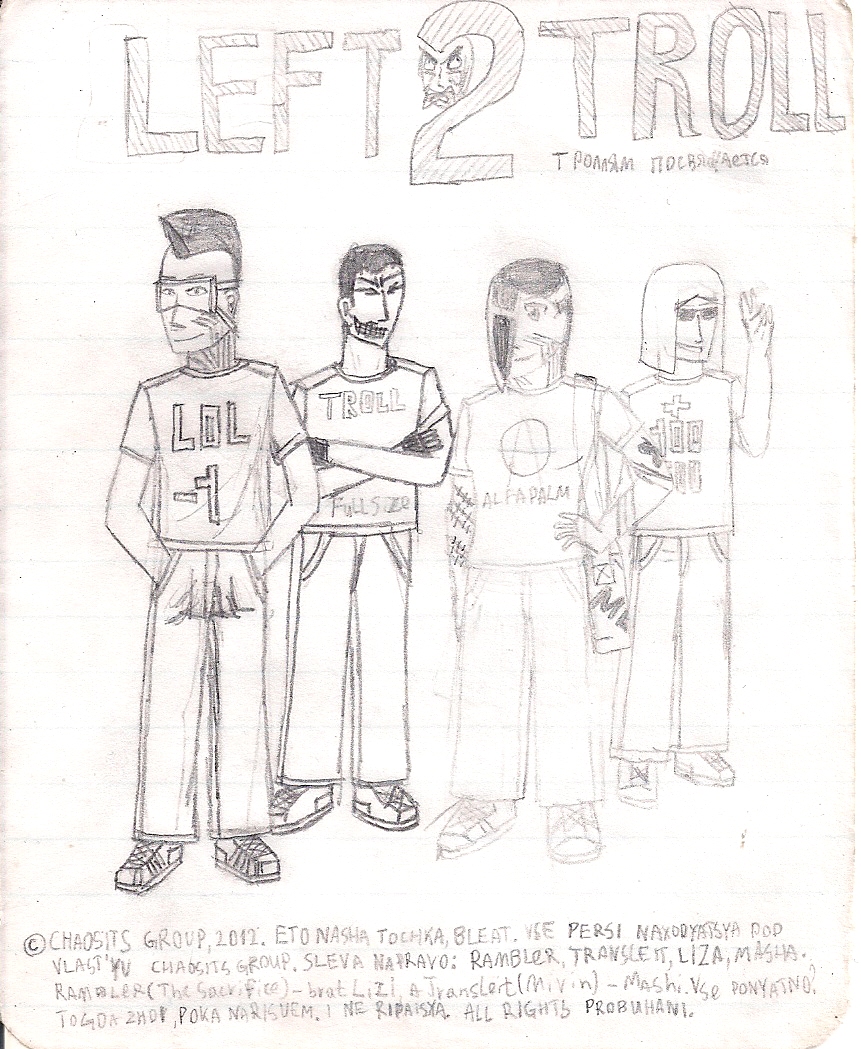 LEFT 2 TROLL
ТРОЛЛЯМ ПОСВЯЩАЕТСЯ
LOL
-1
TROLL
FULLSIZE
A
ALFAPALM
+
100
500
© CHAOSITS GROUP, 2012. ETO NASHA TOCHKA, BLEAT. VSE PERSI NAXODYATSYA POD
VLAST'YU CHAOSITS GROUP. SLEVA NAPRAVO: RAMBLER, TRANSLEIT, LIZA, MASHA.
RAMBLER (The Sacrifice) - brat LIZI, A Translert (Mivin) - Mashi. Vse PONYATNO?
TOGDA ZHDI, POKA NARISUEM. I NE RIPAISYA. ALL RIGHTS PROBUHANI.